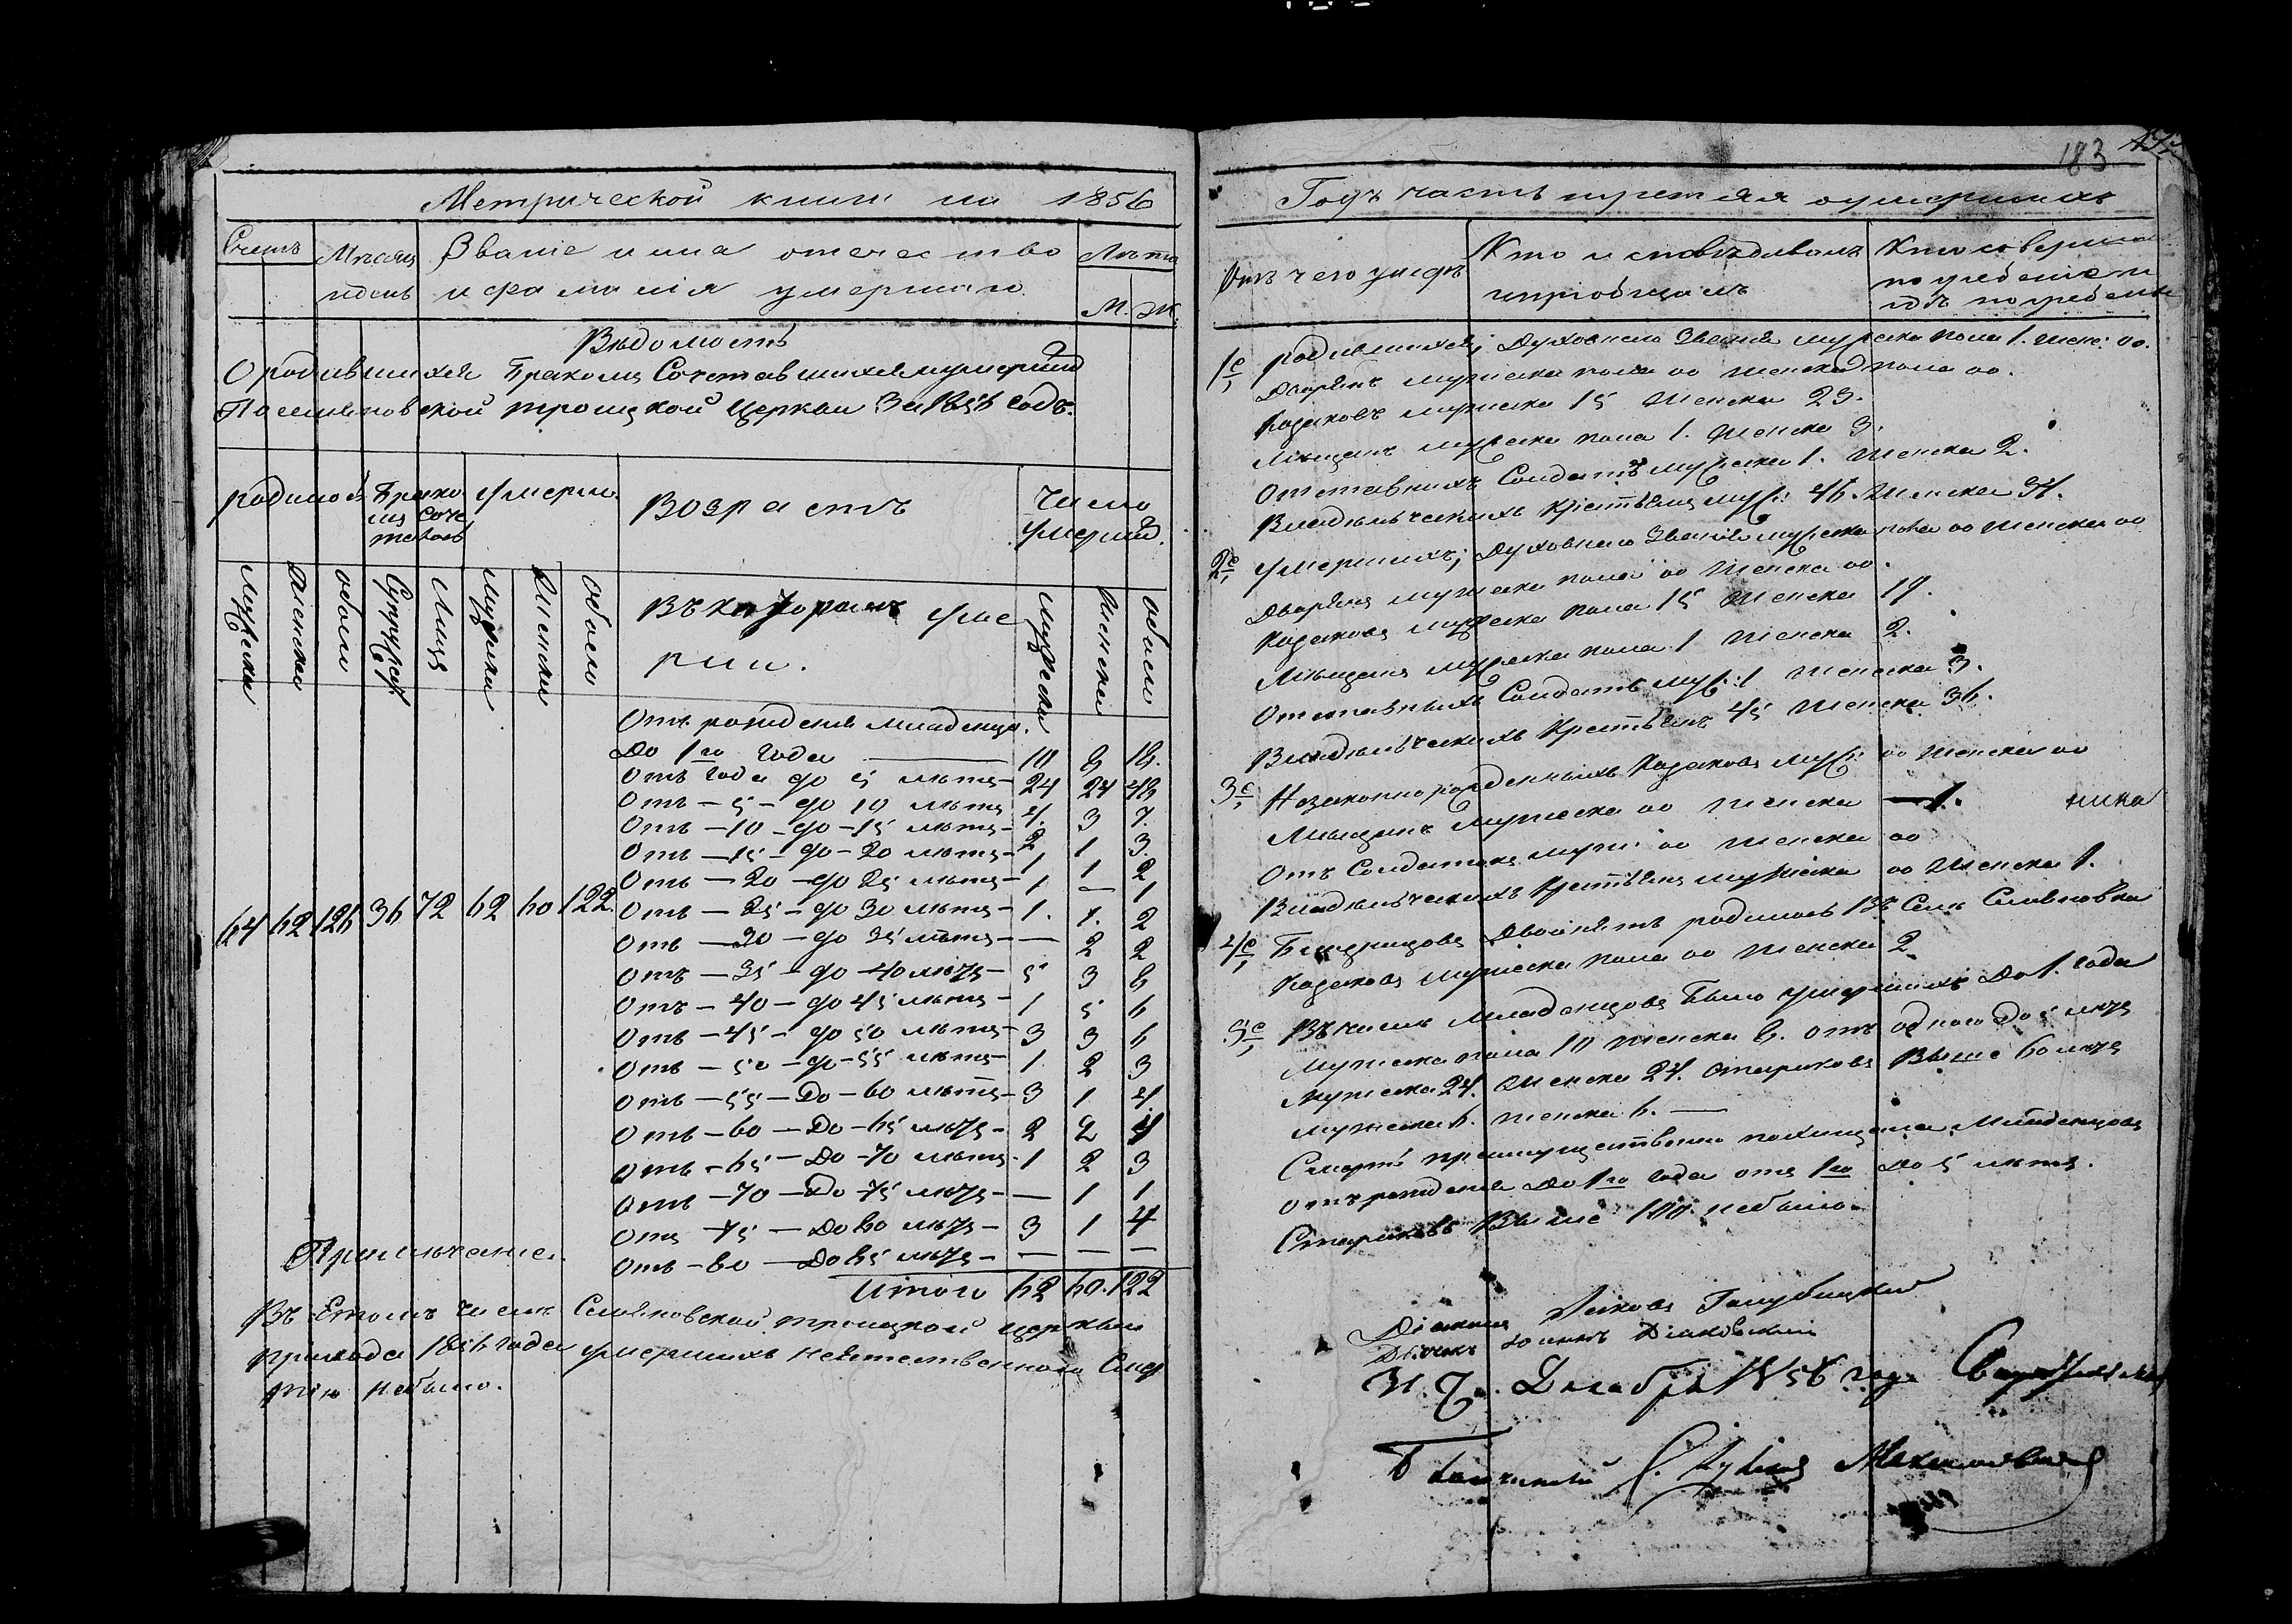 183
Метрической книги на 1856
Счетъ
Мѣсяц
и день
Званіе имя отечество
и фамилія умершаго
Лѣта
М. Ж.
Вѣдомость
О родившихся Бракомъ Сочетавшихся и умерших
Троицкой Церкви За 1856 годъ.
родилось
Брако
мъ соче
талось
умерло
Возрастъ
Число
умерших.
Мужеска
Женска
обоего
Супружеств
Лица
Мужеска
Женска
обоего
Въ которомъ уме
рли.
Мужеска
Женска
обоего
64 62 126 36 72 62 60 122.
Отъ рожденія младенцо.
До 1го года — 10 8 18.
Отъ года до 5 лѣтъ — 24 24 48
Отъ — 5 — до 10 лѣтъ 4. 3 7.
Отъ — 10 — до — 15 лѣтъ — 2 1 3
Отъ — 15 — до — 20 лѣтъ — 1 1 2
Отъ — 20 — до 25 лѣтъ — 1 — 1
Отъ — 25 — до 30 лѣтъ — 1. 1. 2
Отъ — 30 — до 35 лѣтъ — — 2 2
Отъ — 35 — до — 40 лѣтъ — 5 3 8
Отъ — 40 — до 45 лѣтъ — 1 5 6
Отъ — 45 — до 50 лѣтъ — 3 3 6
Отъ — 50 — до — 55 лѣтъ — 1 2 3
Отъ — 55 — До — 60 лѣтъ — 3 1 4
Отъ — 60 — До — 65 лѣтъ — 2 2 4
Отъ — 65 — До — 70 лѣтъ — 1 2 3
Отъ — 70 — До — 75 лѣтъ — — 1 1
Отъ — 75 — До 80 лѣтъ — 3 1 4
Отъ — 80 — До 85 лѣтъ — — — —
Итого 62 60. 122
Примѣчаніе.
Въ Етомъ числѣ троицкой церкви
прихода 1856 года умершихъ неестественною Смер
тію небыло.
Годъ часть третяя оумершихъ
Отъ чего умеръ
Кто исповѣдывалъ
и пріобщалъ
Кто совершал
погребеніе и
гдѣ погребены
1е родившихся; Духовнаго Званія мужеска пола 1. женс: оо.
Дворянъ мужеска пола оо женска пола оо.
Козаковъ мужеска 15 Женска 23.
Мѣщанъ мужеска пола 1. Женска 3.
Отставныхъ Солдатъ мужеска 1. Женска 2.
Владѣльческихъ Крестьянъ муж: 46. Женска 34.
2е, умершихъ; Духовнаго Званія мужеска пола оо Женска оо
Дворянъ мужеска пола оо Женска оо.
Козаковъ мужеска пола 15 Женска 19.
Мѣщанъ мужеска пола 1 Женска 2.
Отставныхъ Солдатъ муж: 1 Женска 3.
Владѣльческихъ Крестьянъ 45 Женска 36.
3е, Незаконнорожденныхъ Козаковъ муж: оо Женска оо
Мѣщанъ мужеска оо Женска — 1.
Отъ Солдатокъ муж: оо Женска оо
Владѣльческихъ Крестьянъ мужеска оо Женска 1.
4е, Близнецовъ двойнятъ родилось Въ Селѣ
Козаковъ мужеска пола оо Женска 2
5е, Въ числѣ Младенцовъ Было умершихъ До 1. года
Мужеска пола 10 женска 8. отъ одного До 5 лѣтъ
мужеска 24. Женска 24. Стариковъ Выше 60 лѣтъ
мужеска 6. женска 6. —
Смерть преимущественно похищала Младенцовъ
отъ рожденія До 1го года отъ 1го До 5 лѣтъ.
Стариковъ Выше 100 небыло.
Діаконъ Іаковъ Голубицкій
Дьячекъ Іоаннъ Діаковскій
31 Декабря 1856 года
Благочинный